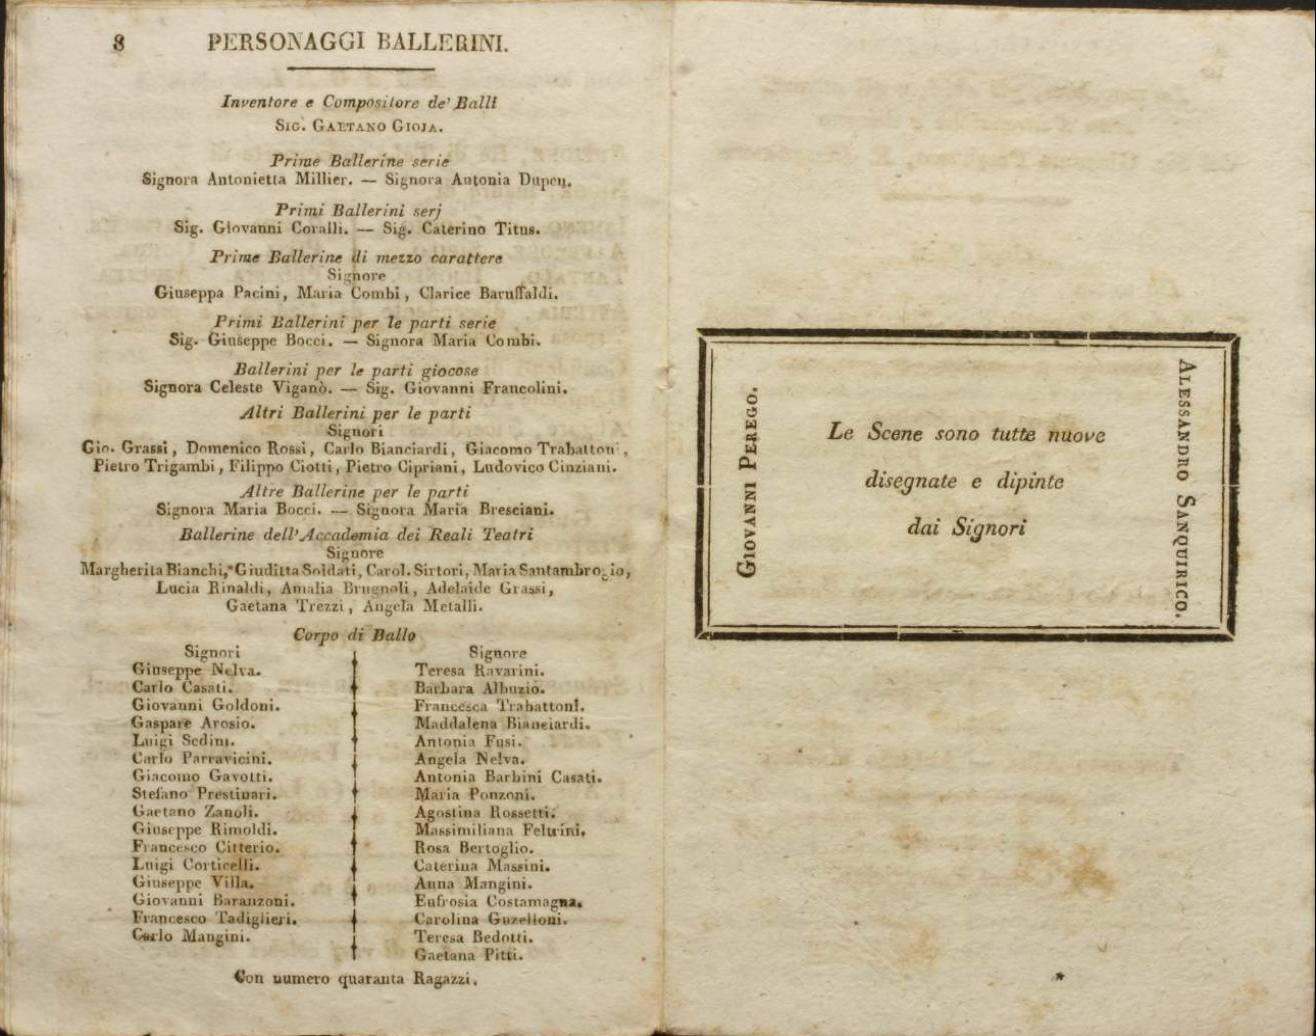 8 PERSONAGGI BALLERINI.
Inventore e Compositore de' Balli
SIG. GAETANO GIOJA.
Prime Ballerine serie
Signora Antonietta Millier. — Signora Antonia Dupen.
Primi Ballerini serj
Sig. Giovanni Coralli. — Sig. Caterino Titus.
Prime Ballerine di mezzo carattere
Signore
Giuseppa Pacini, Maria Combi, Clarice Baruffaldi.
Primi Ballerini per le parti serie
Sig. Giuseppe Bocci. — Signora Maria Combi.
Ballerini per le parti giocose
Signora Celeste Viganò. — Sig. Giovanni Francolini.
Altri Ballerini per le parti
Signori
Gio. Grassi, Domenico Rossi, Carlo Bianciardi, Giacomo Trabattoni,
Pietro Trigambi, Filippo Ciotti, Pietro Cipriani, Ludovico Cinziani.
Altre Ballerine per le parti
Signora Maria Bocci. — Signora Maria Bresciani.
Ballerine dell'Accademia dei Reali Teatri
Signore
Margherita Bianchi, Giuditta Soldati, Carol. Sirtori, Maria Santambrogio,
Lucia Rinaldi, Amalia Brugnoli, Adelaide Grassi,
Gaetana Trezzi, Angela Metalli.
Corpo di Ballo
Signori
Giuseppe Nelva.
Carlo Casati.
Giovanni Goldoni.
Gaspare Arosio.
Luigi Sedini.
Carlo Parravicini.
Giacomo Gavotti.
Stefano Prestinari.
Gaetano Zanoli.
Giuseppe Rimoldi.
Francesco Citterio.
Luigi Corticelli.
Giuseppe Villa.
Giovanni Baranzoni.
Francesco Tadiglieri.
Carlo Mangini.
Signore
Teresa Ravarini.
Barbara Albuzio.
Francesca Trabattoni.
Maddalena Bianciardi.
Antonia Fusi.
Angela Nelva.
Antonia Barbini Casati.
Maria Ponzoni.
Agostina Rossetti.
Massimiliana Feltrini.
Rosa Bertoglio.
Caterina Massini.
Anna Mangini.
Eufrosia Costamagna.
Carolina Guzelloni.
Teresa Bedotti.
Gaetana Pitti.
Con numero quaranta Ragazzi.
Le Scene sono tutte nuove
disegnate e dipinte
dai Signori
GIOVANNI PEREGO.
ALESSANDRO SANQUIRICO.
*